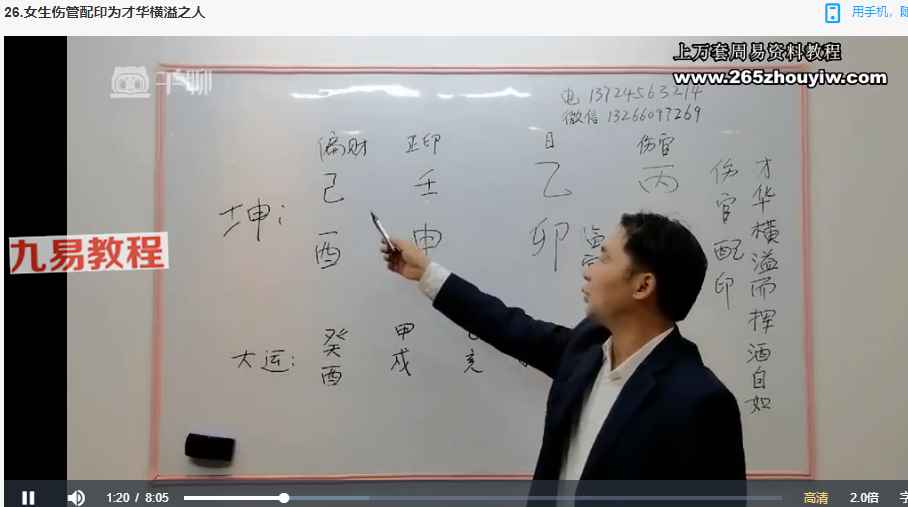 26.女生伤管配印为才华横溢之人
用手机，
上万套周易资料教程
www.265zhouyiw.com
电 13724563214
微信 13266097269
偏财 正印 日 伤官
坤： 己 壬 乙 丙
酉 申 卯
大运： 癸 甲
酉 戌 亥
伤官配印
才华横溢而挥洒自如
九易教程
1:20 / 8:05
高清 2.0倍 字